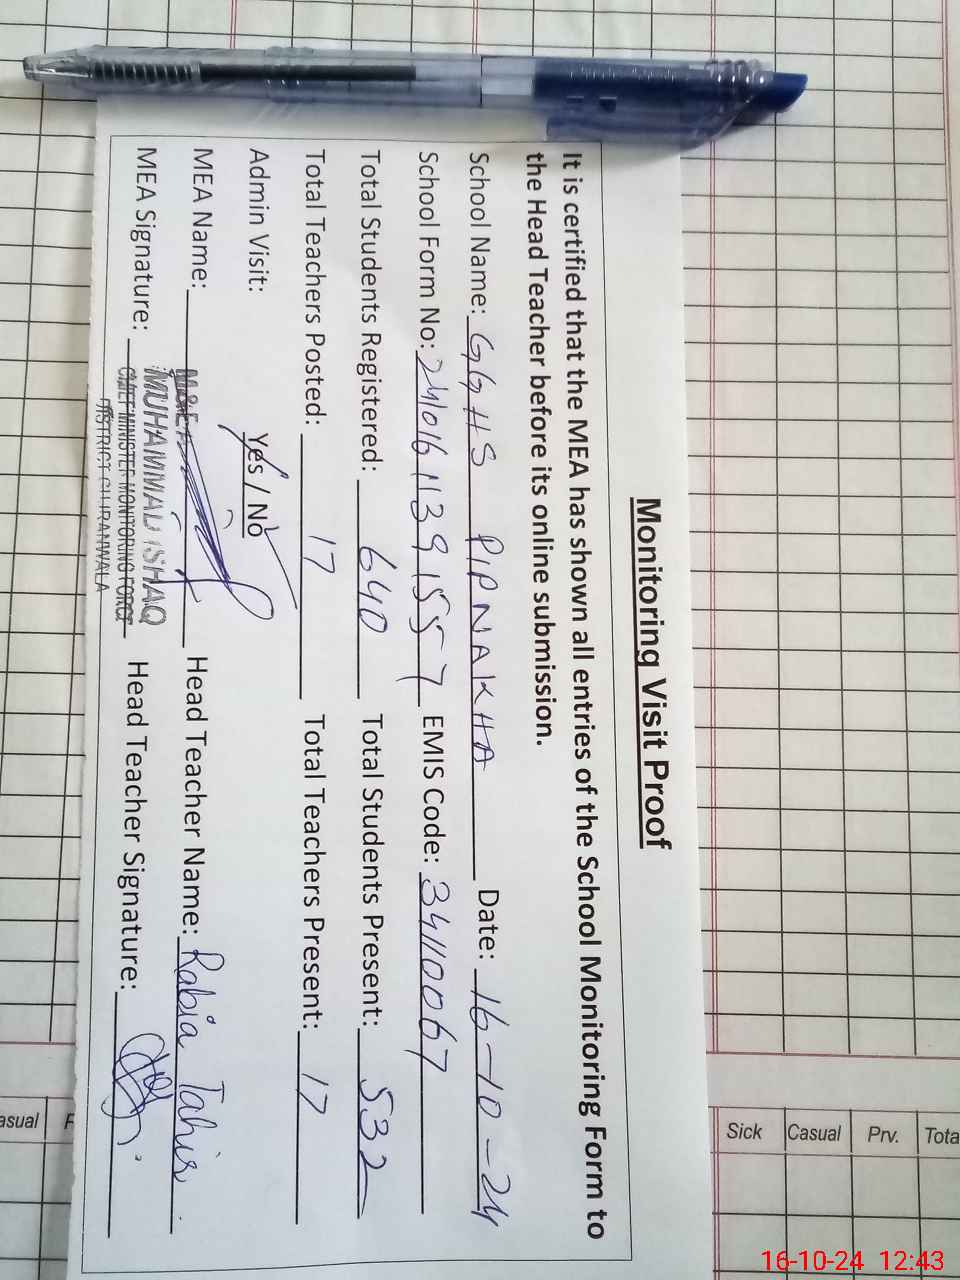 Monitoring Visit Proof
It is certified that the MEA has shown all entries of the School Monitoring Form to
the Head Teacher before its online submission.
School Name: GGHS PIPNAKHA Date: 16-10-24
School Form No: 24101611391557 EMIS Code: 34110067
Total Students Registered: 640 Total Students Present: 532
Total Teachers Posted: 17 Total Teachers Present: 17
Admin Visit: Yes / No
MEA Name: Head Teacher Name: Rabia Tahir
MEA Signature: Head Teacher Signature:
MUHAMMAD ISHAQ
CHIEF MINISTER MONITORING FORCE
DISTRICT GUJRANWALA
Sick Casual Prv. Tota
asual
16-10-24 12:43